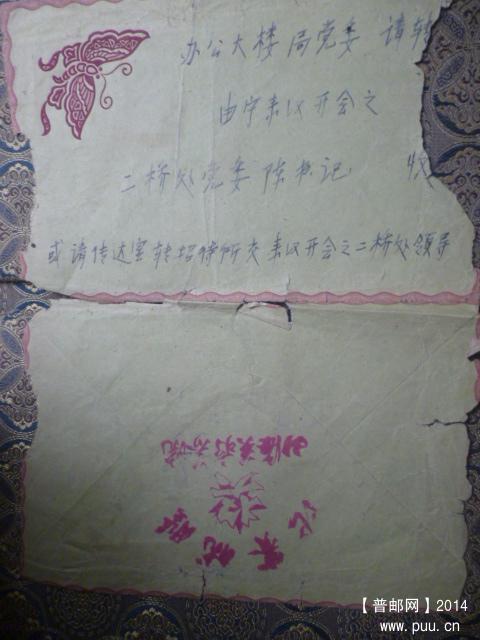 办公大楼 局党委 请转
由宁来汉开会之
二桥处党委 陈书记 收
或请传达室转招待所交来汉开会之二桥处领导
【普邮网】2014
www.puu.cn